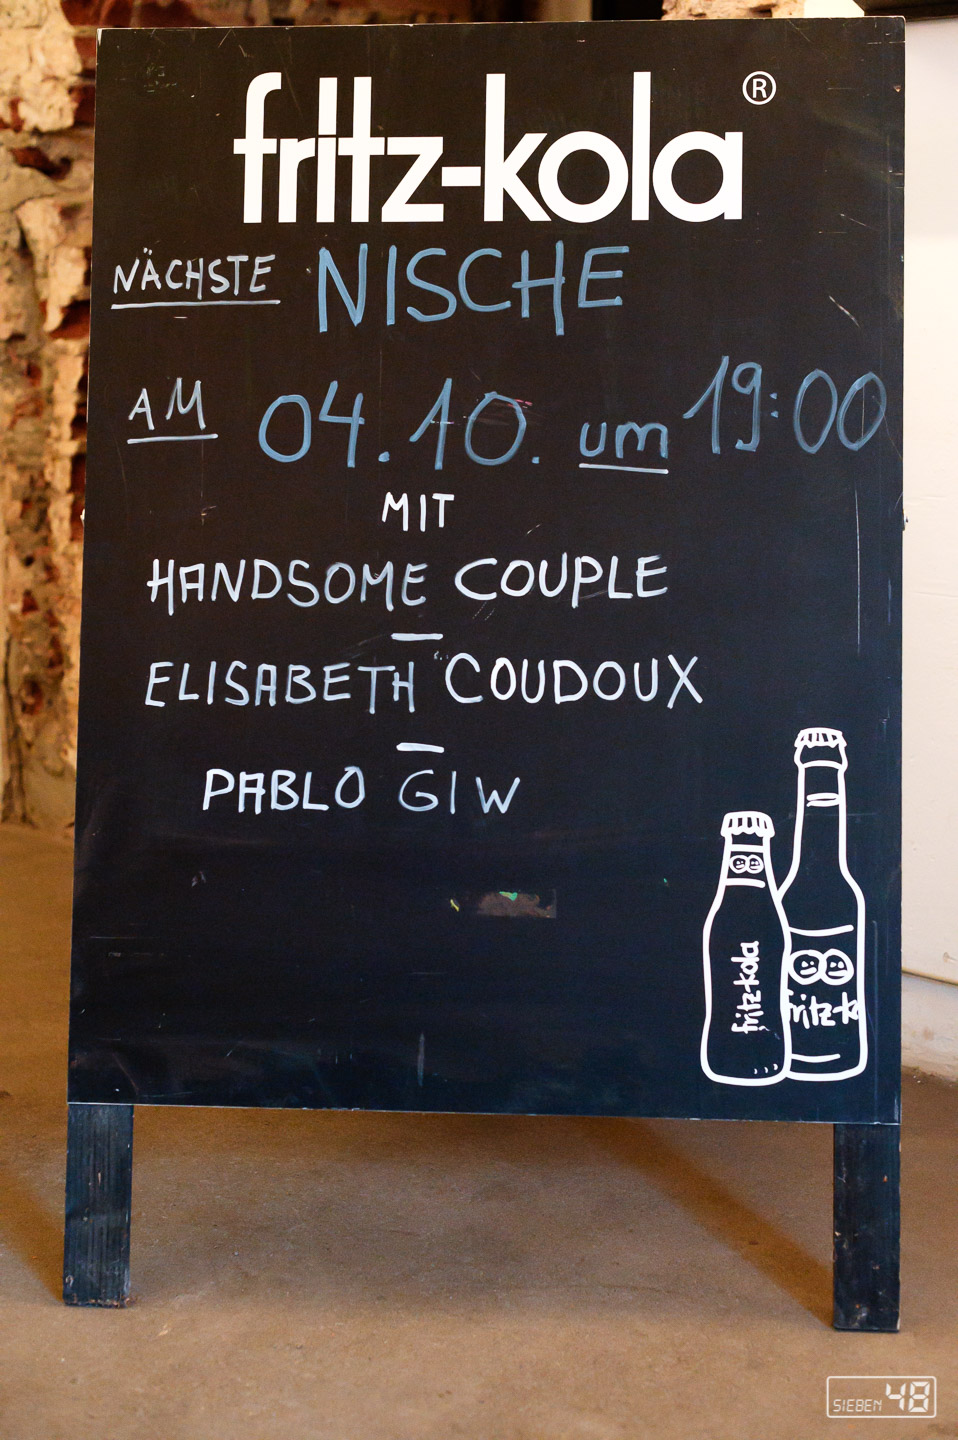 fritz-kola®
NÄCHSTE NISCHE
AM 04.10. um 19:00
MIT
HANDSOME COUPLE
–
ELISABETH COUDOUX
–
PABLO GIW
fritz-kola
fritz-k
SIEBEN 48